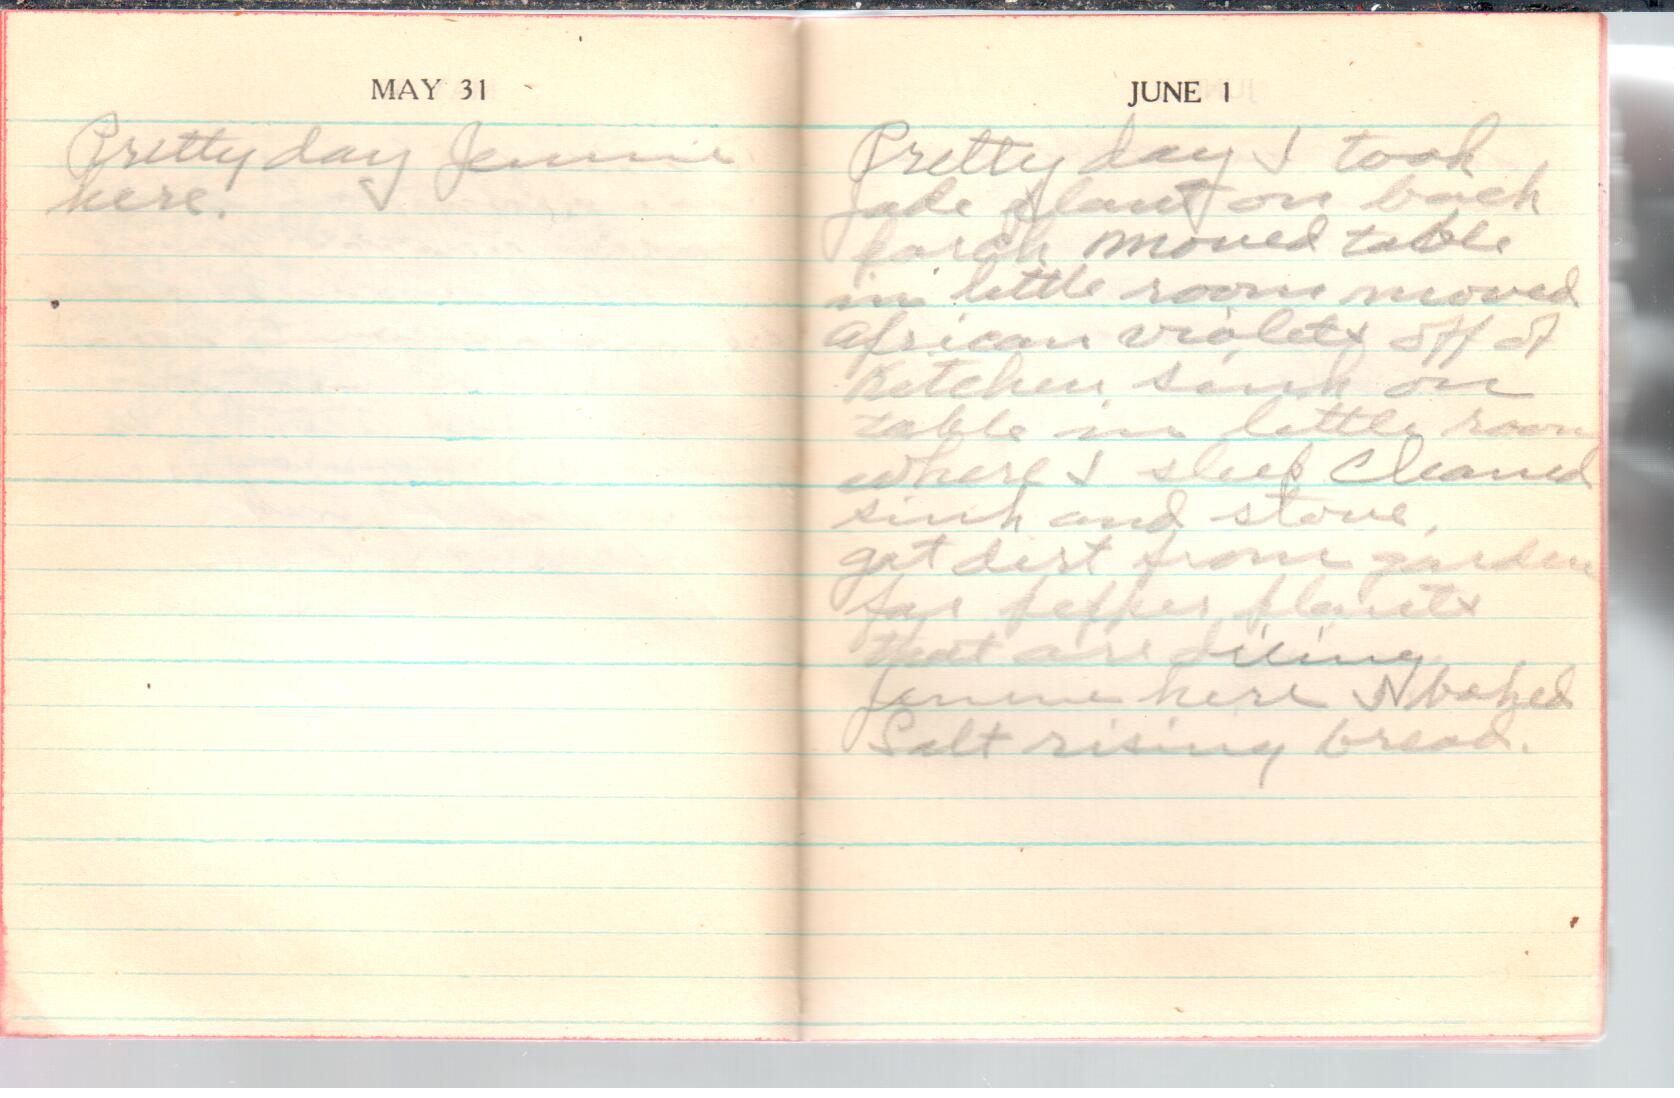 MAY 31
Pretty day Jennie
here.
JUNE 1
Pretty day I took
jade plant on back
porch moved table
in little room moved
african violets off of
kitchen sink on
table in little room
where I sleep cleaned
sink and stove,
got dirt from garden
for pepper plants
that are diing
Jennie here I baked
Salt rising bread.